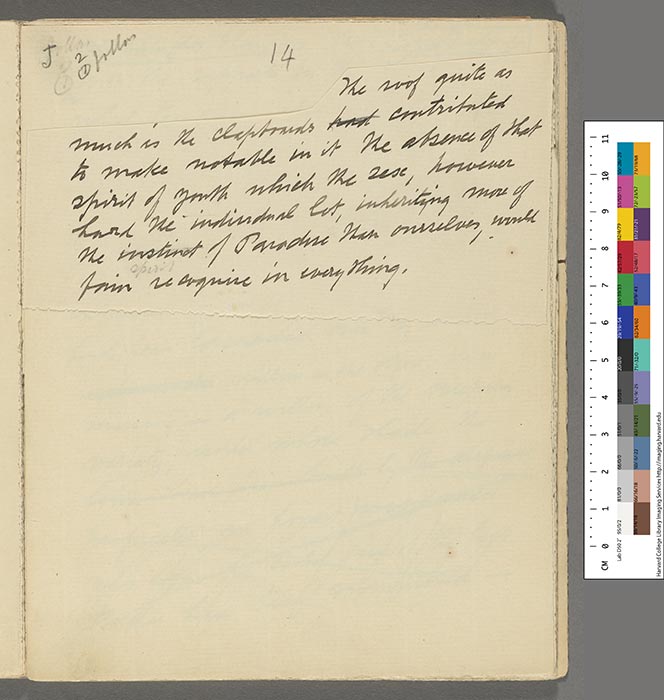 J
2
follow
14
The roof quite as
much is the clapboards had contributed
to make notable in it the absence of that
spirit of youth which the sex, however
hard the individual lot, inheriting more of
the instinct of Paradise than ourselves, would
spirit
fain recognise in everything.
11
10
9
8
7
6
5
4
3
2
1
0
CM
Harvard College Library Imaging Services http://imaging.harvard.edu